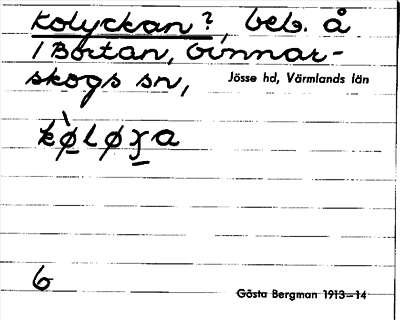 Kolyckan?, beb. å
1 Bortan, Gunnar-
skogs sn,
Jösse hd, Värmlands län
kø̀Løχa
6
Gösta Bergman 1913–14